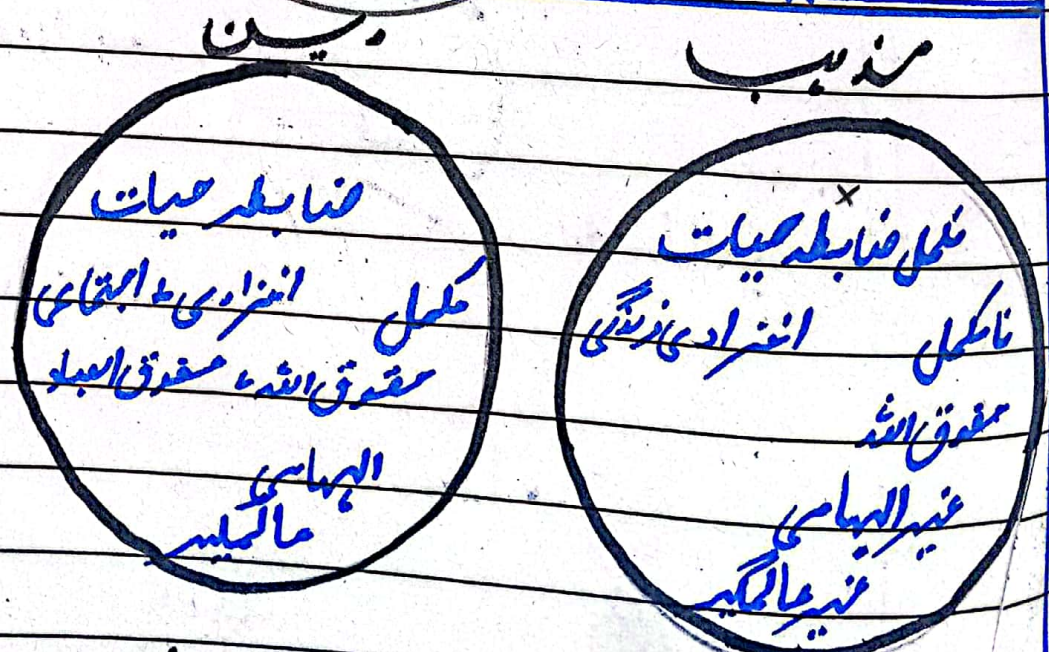 مذہب
×
مکمل ضابطہ حیات
نامکمل انفرادی زندگی
حقوق اللہ
غیر الہامی
غیر عالمگیر
دین
ضابطہ حیات
مکمل انفرادی، اجتماعی
حقوق اللہ، حقوق العباد
الہامی
عالمگیر